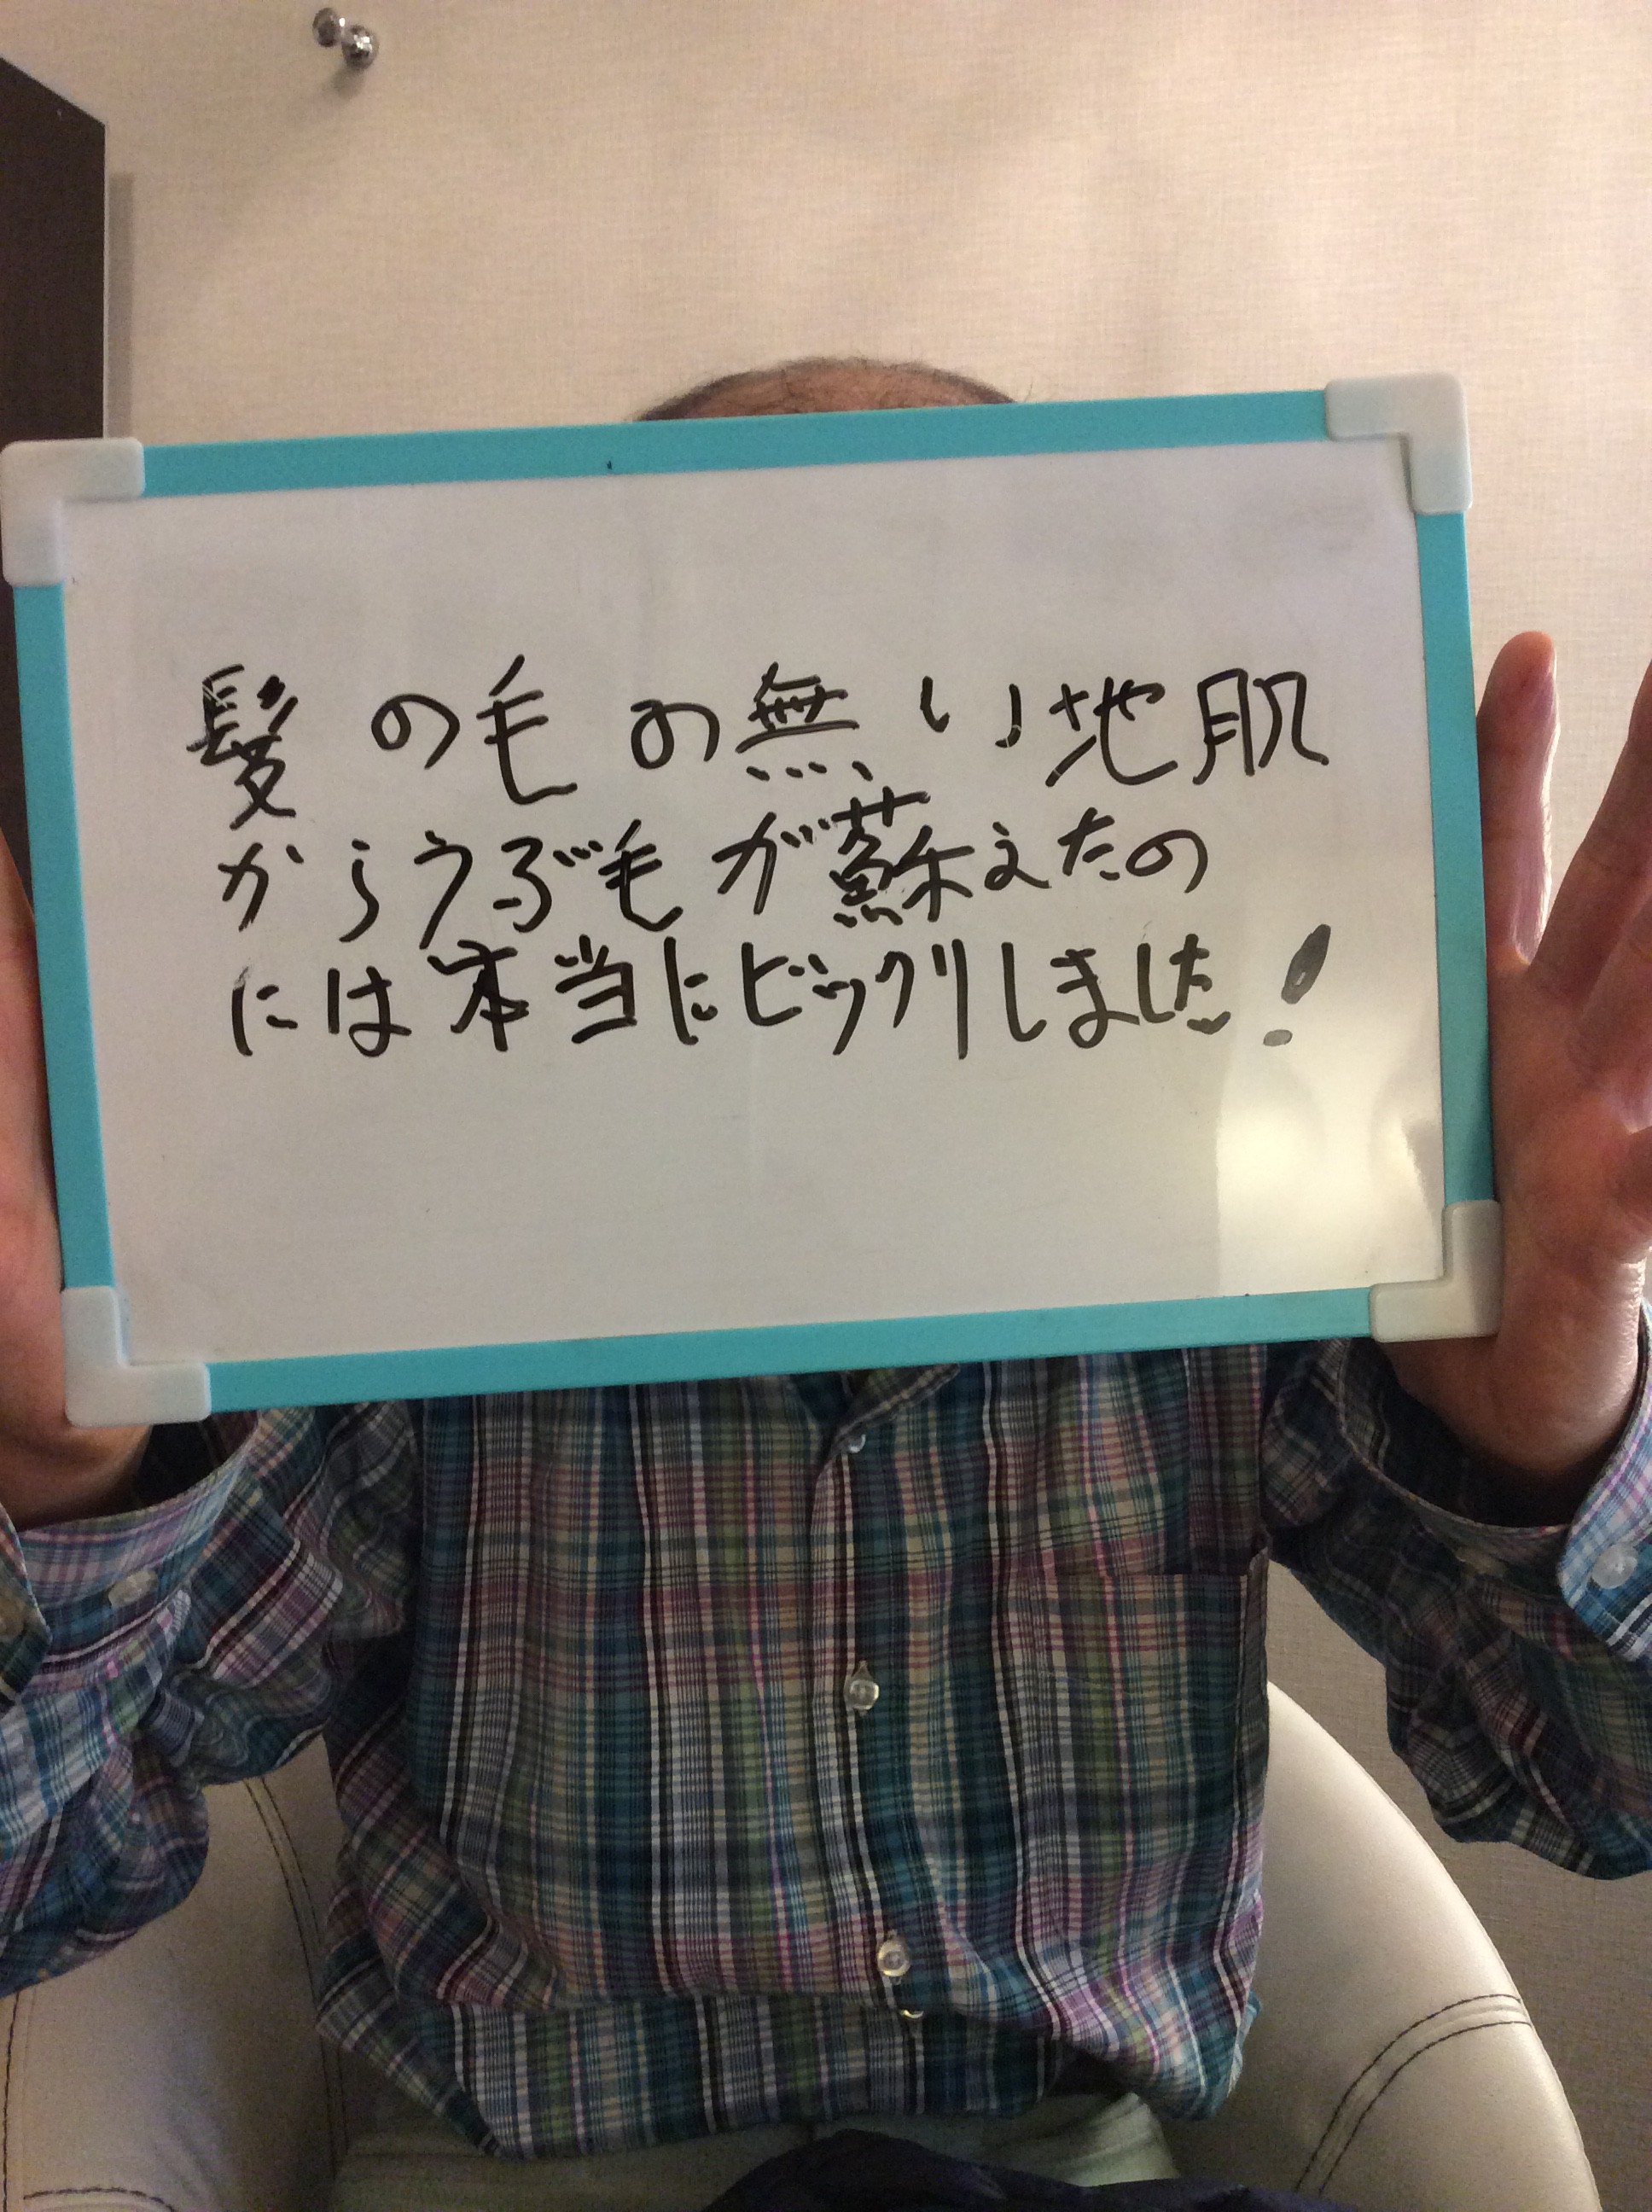 髪の毛の無い地肌
からうぶ毛が蘇えたの
には本当にビックリしました!